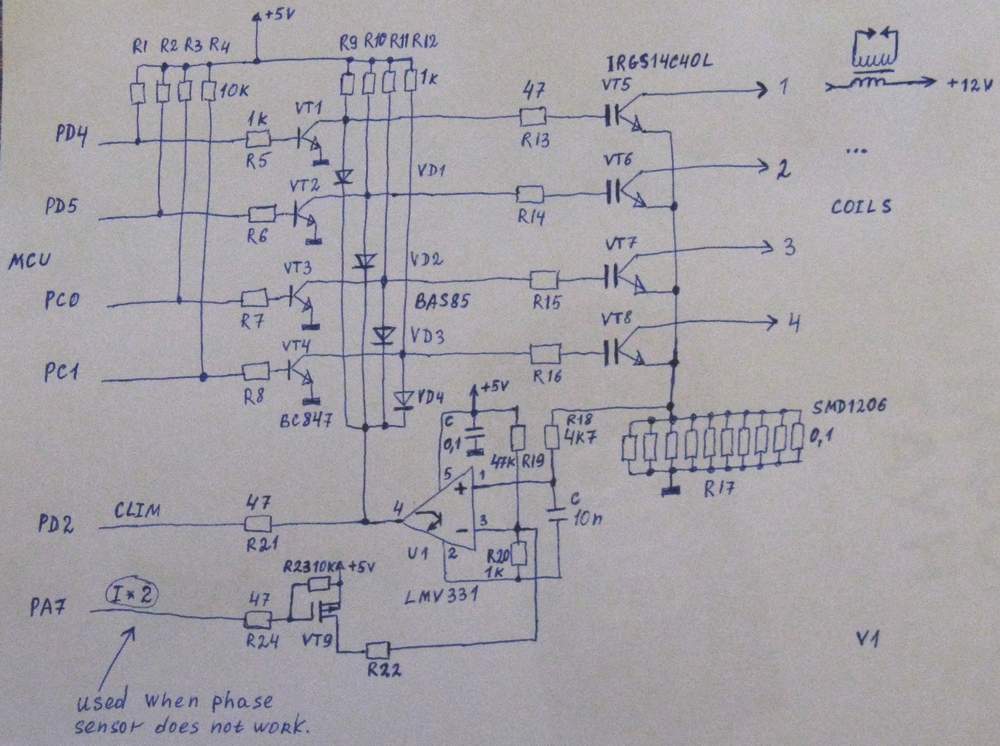 +5V
R1 R2 R3 R4 R9 R10 R11 R12
IRGS14C40L
10K 1K 47 VT5 1 +12V
VT1
PD4 1K R5 R13
...
VT2 VD1 VT6 2
COILS
PD5 R6 R14
MCU VT3 VD2 VT7 3
PC0 R7 BAS85 R15
VT4 VD3 VT8 4
PC1 R8 R16
BC847 VD4 +5V
C 0,1 R18 4K7 SMD1206
47K R19 0,1
5 1 + R17
PD2 CLIM 47 4 - 3 C 10n
R21 U1 2 R20 1K
R23 10K +5V LMV331
PA7 I*2 47
R24 VT9 R22 V1
used when phase
sensor does not work.